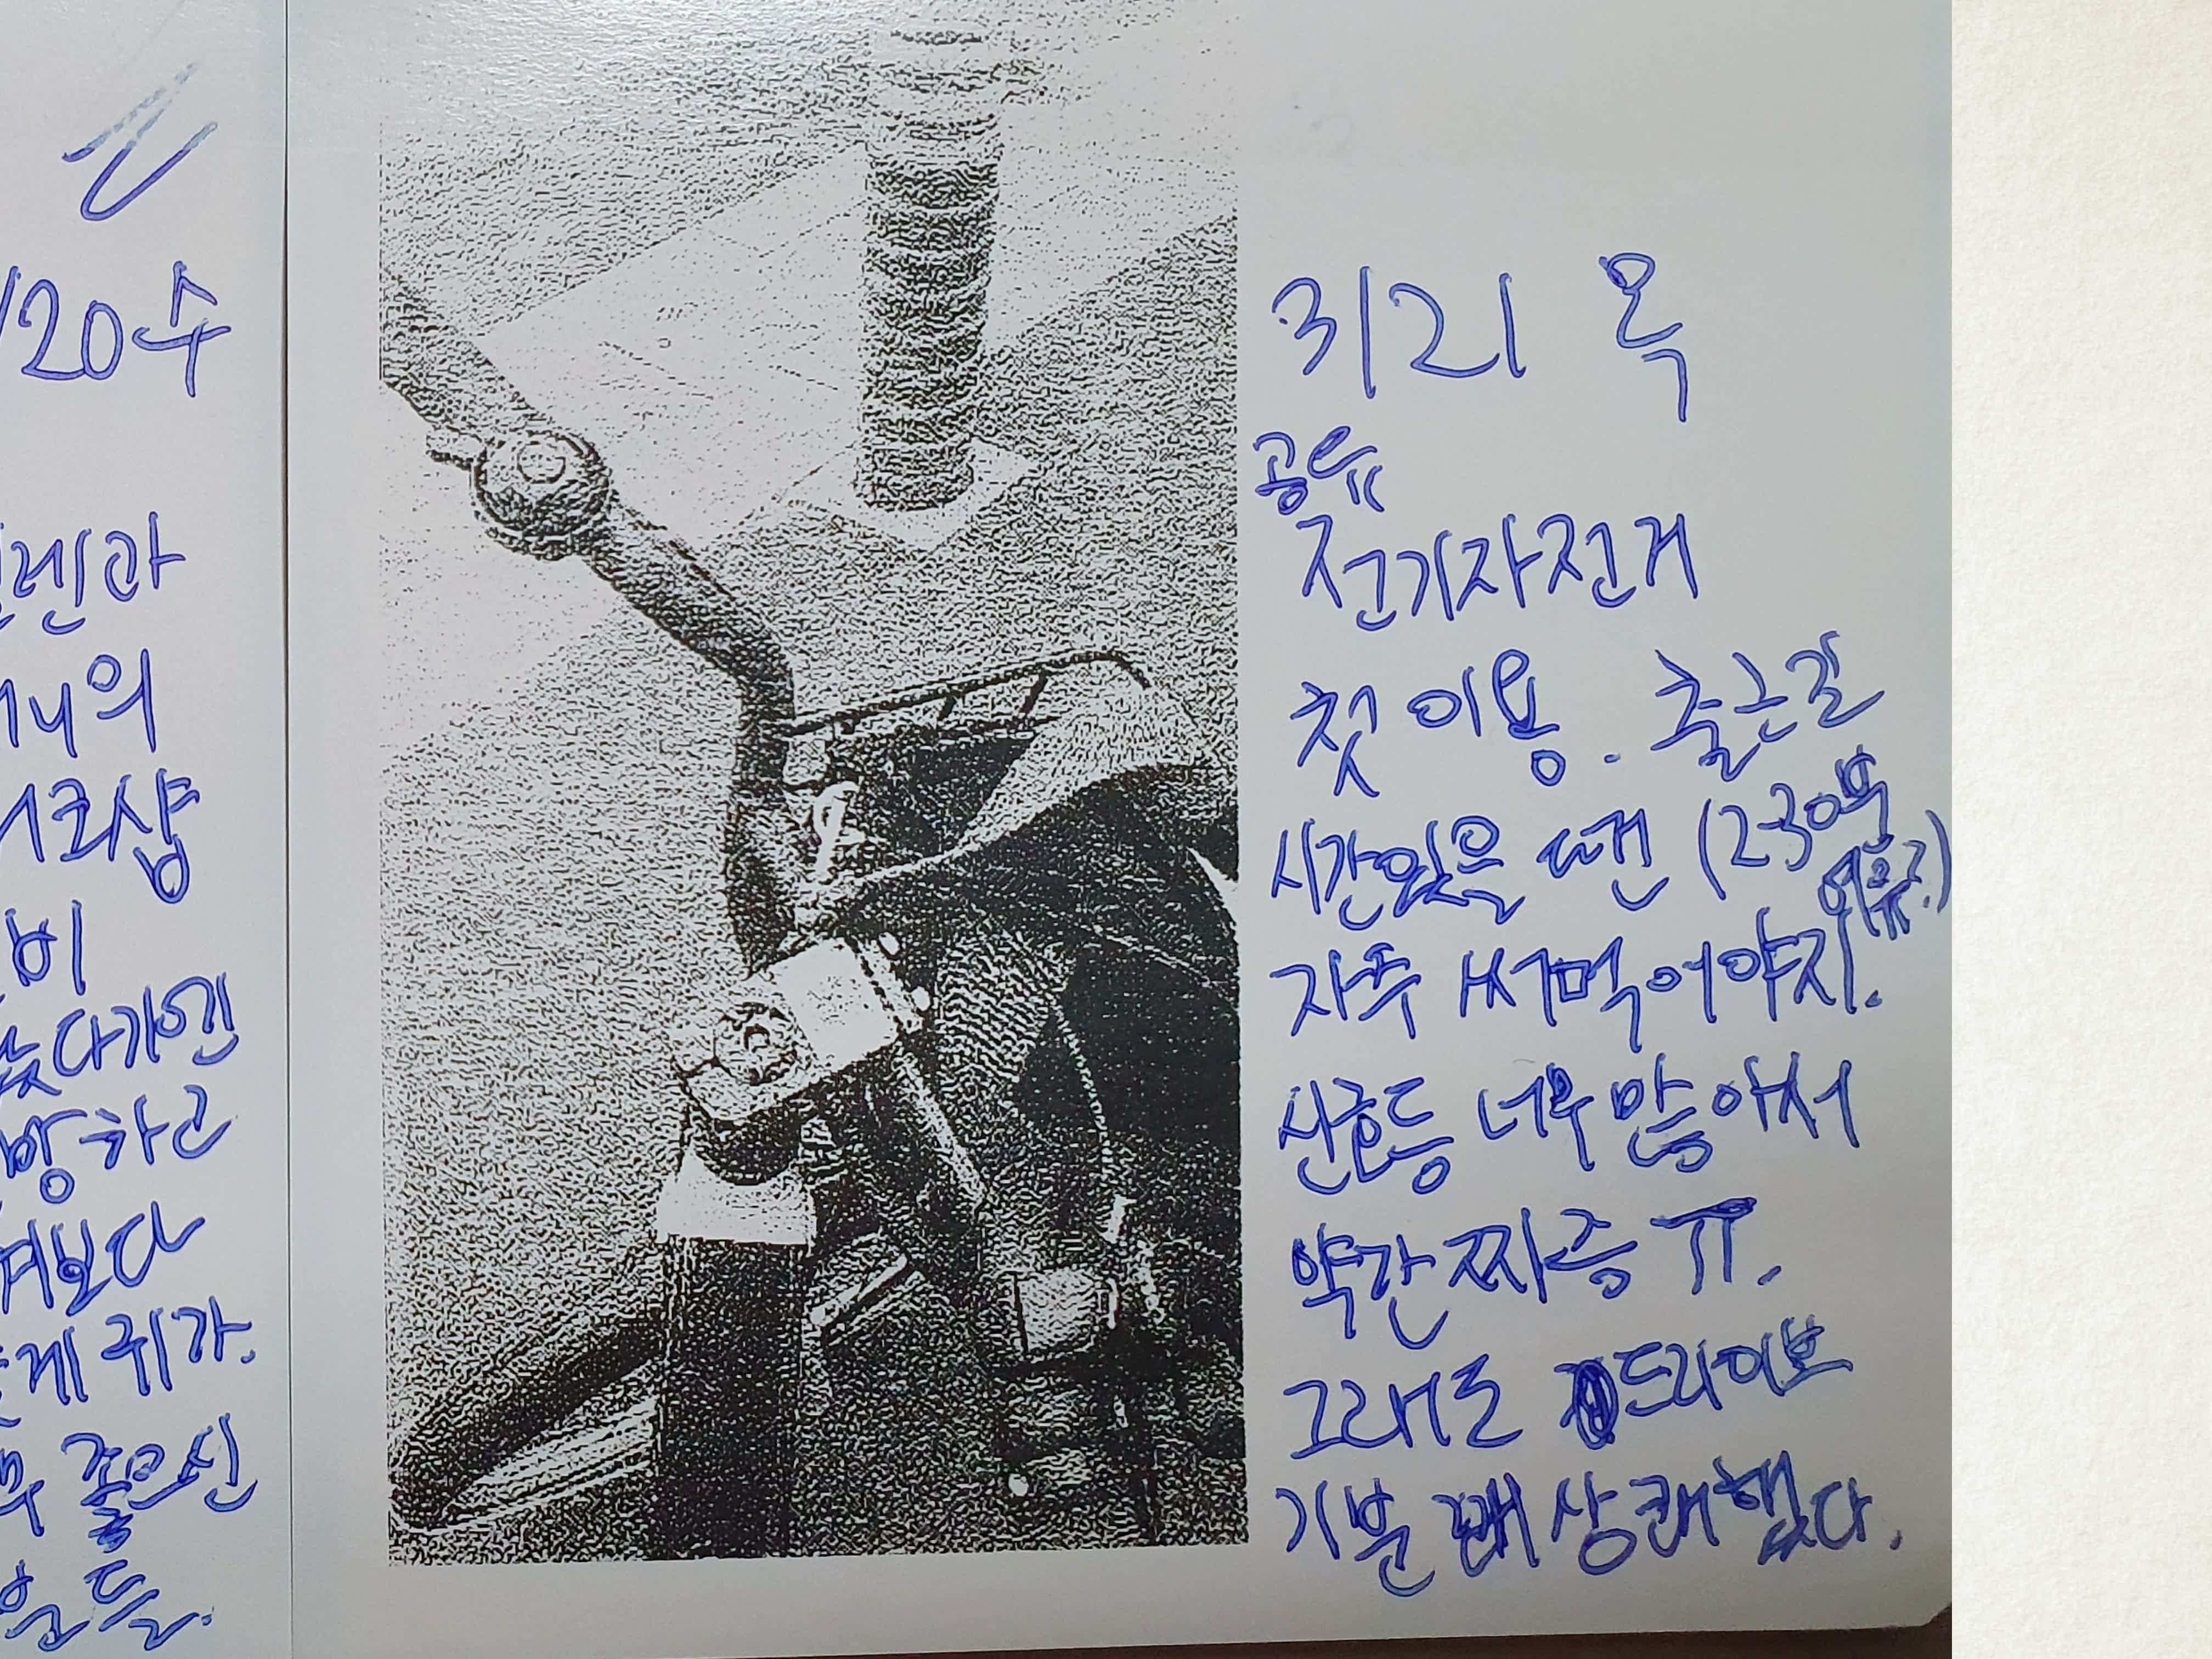 /20 수
렌과
의
크샵
비
다가엔
방하고
보다
게 귀가.
좋으신
들.
3/21 목
공유
전기자전거
첫 이용. 출근길
시간있을 땐 (2-30분 여유?)
자주 써먹어야지.
신호등 너무 많아서
약간 짜증 ㅠ.
그래도 드라이브
기분 꽤 상쾌했다.